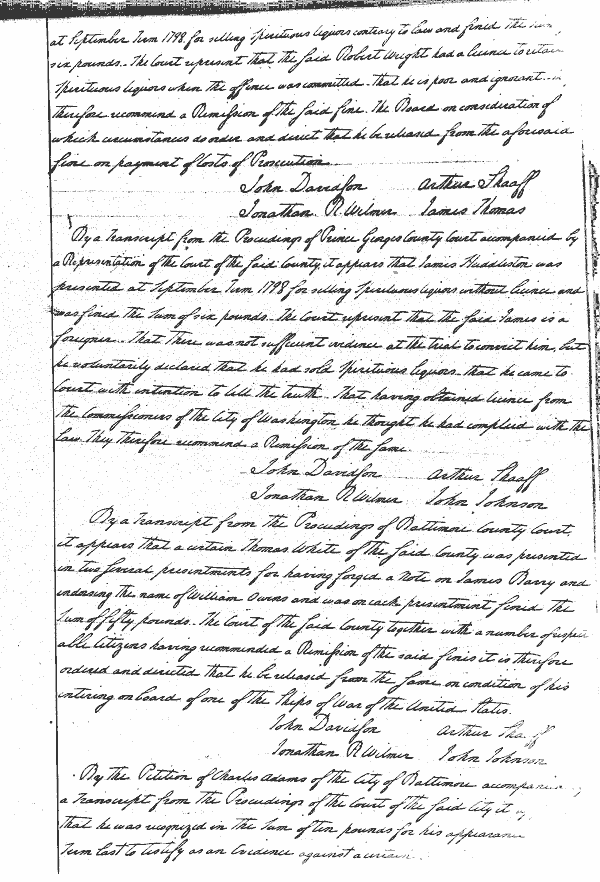 at September Term 1798 for selling Spirituous liquors contrary to Law and fined the
six pounds. The Court represent that the said Robert Wright had a licence to retain
Spirituous liquors when the offence was committed. that he is poor and ignorant
therefore recommend a Remission of the said fine. The Board on consideration of
which circumstances do order and direct that he be released from the aforesaid
fine on payment of Costs of Prosecution
John Davidson Arthur Shaaff
Jonathan R Wilmer James Thomas
By a Transcript from the Proceedings of Prince Georges County Court accompanied by
a Representation of the Court of the said County, it appears that James Huddleston was
presented at September Term 1798 for selling Spirituous liquors without licence and
was fined the Sum of six pounds. The Court represent that the said James is a
foreigner. That there was not sufficient evidence at the trial to convict him, but
he voluntarily declared that he had sold Spirituous liquors. that he came to
Court with intention to tell the truth. That having obtained licence from
the Commissioners of the City of Washington he thought he had complied with the
Law. They therefore recommend a Remission of the same.
John Davidson Arthur Shaaff
Jonathan R Wilmer John Johnson
By a Transcript from the Proceedings of Baltimore County Court,
it appears that a certain Thomas White of the said County was presented
in two several presentments for having forged a note on James Barry and
indorsing the name of William Owens and was on each presentment fined the
Sum of fifty pounds. The Court of the said County together with a number of respect
able Citizens having recommended a Remission of the said fines it is therefore
ordered and directed that he be released from the same on condition of his
entering on board of one of the Ships of War of the United States.
John Davidson Arthur Shaaff
Jonathan R Wilmer John Johnson
By the Petition of Charles Adams of the City of Baltimore
a Transcript from the Proceedings of the Court of the said City it
that he was recognized in the Sum of ten pounds for his appearance
Term last to testify as an Evidence against a certain